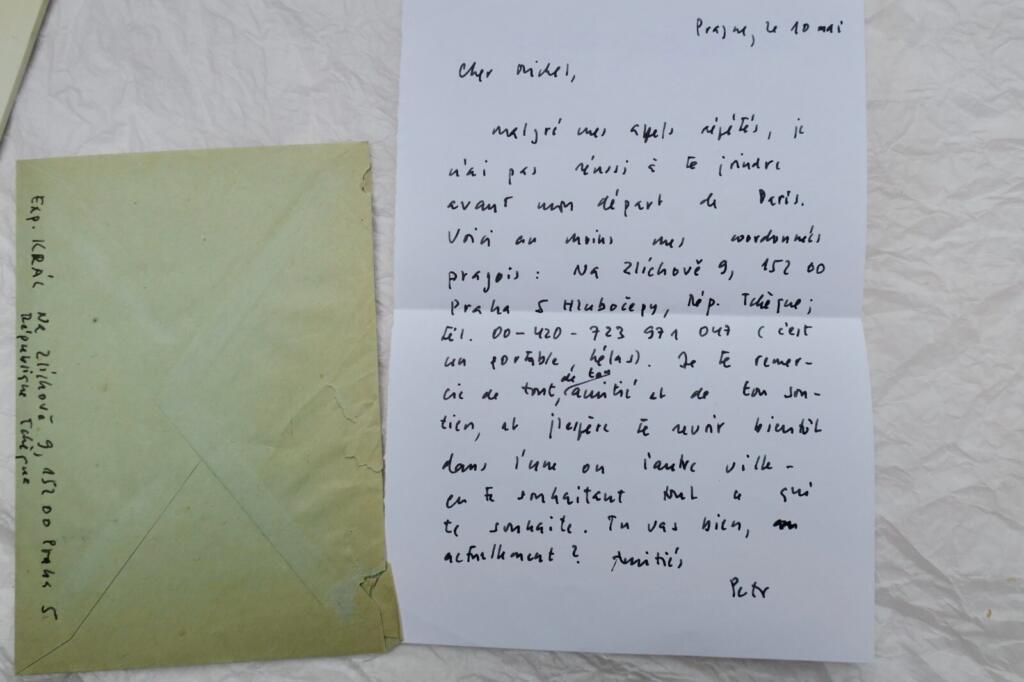 Exp. KRÁL Na Zlíchově 9, 152 00 Praha 5
République Tchèque
Prague, le 10 mai
Cher Michel,
Malgré mes appels répétés, je
n'ai pas réussi à te joindre
avant mon départ de Paris.
Voici au moins mes coordonnés
pragois : Na Zlíchově 9, 152 00
Praha 5 Hlubočepy, Rép. Tchèque ;
tél. 00-420-723 971 047 (c'est
un portable, hélas). Je te remer-
cie de tout, de ton amitié et de ton sou-
tien, et j'espère te revoir bientôt
dans l'une ou l'autre ville -
en te souhaitant tout ce qui
te souhaite. Tu vas bien,
actuellement ? Amitiés
Petr